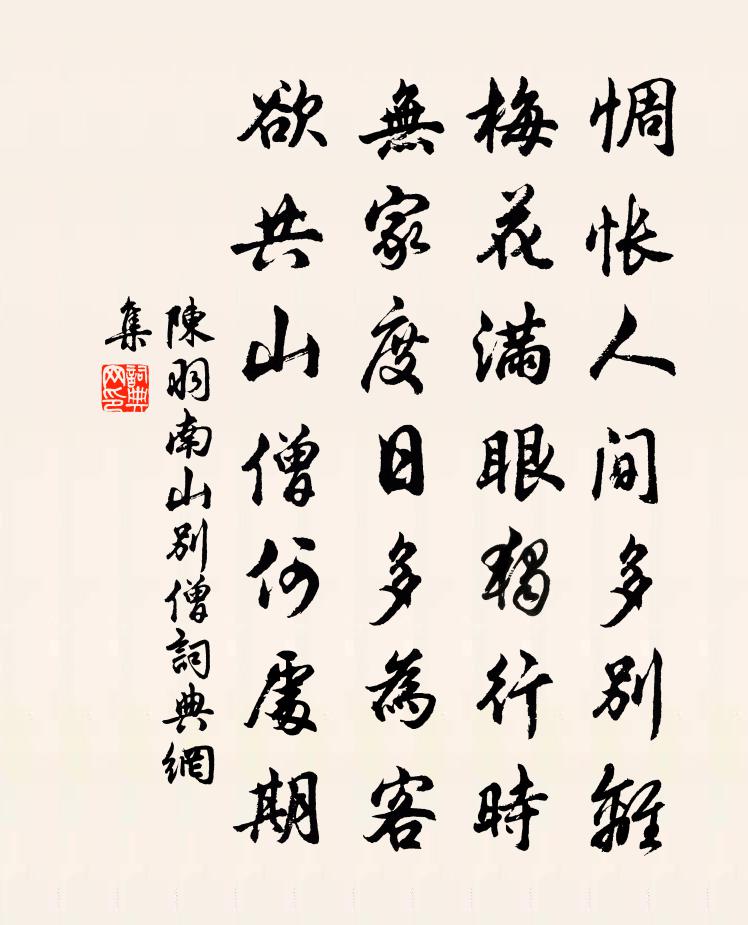 惆悵人间多別離
梅花满眼獨行時
無家度日多為客
欲共山僧何處期
陳羽南山別僧詞典網
集
詞典
网印